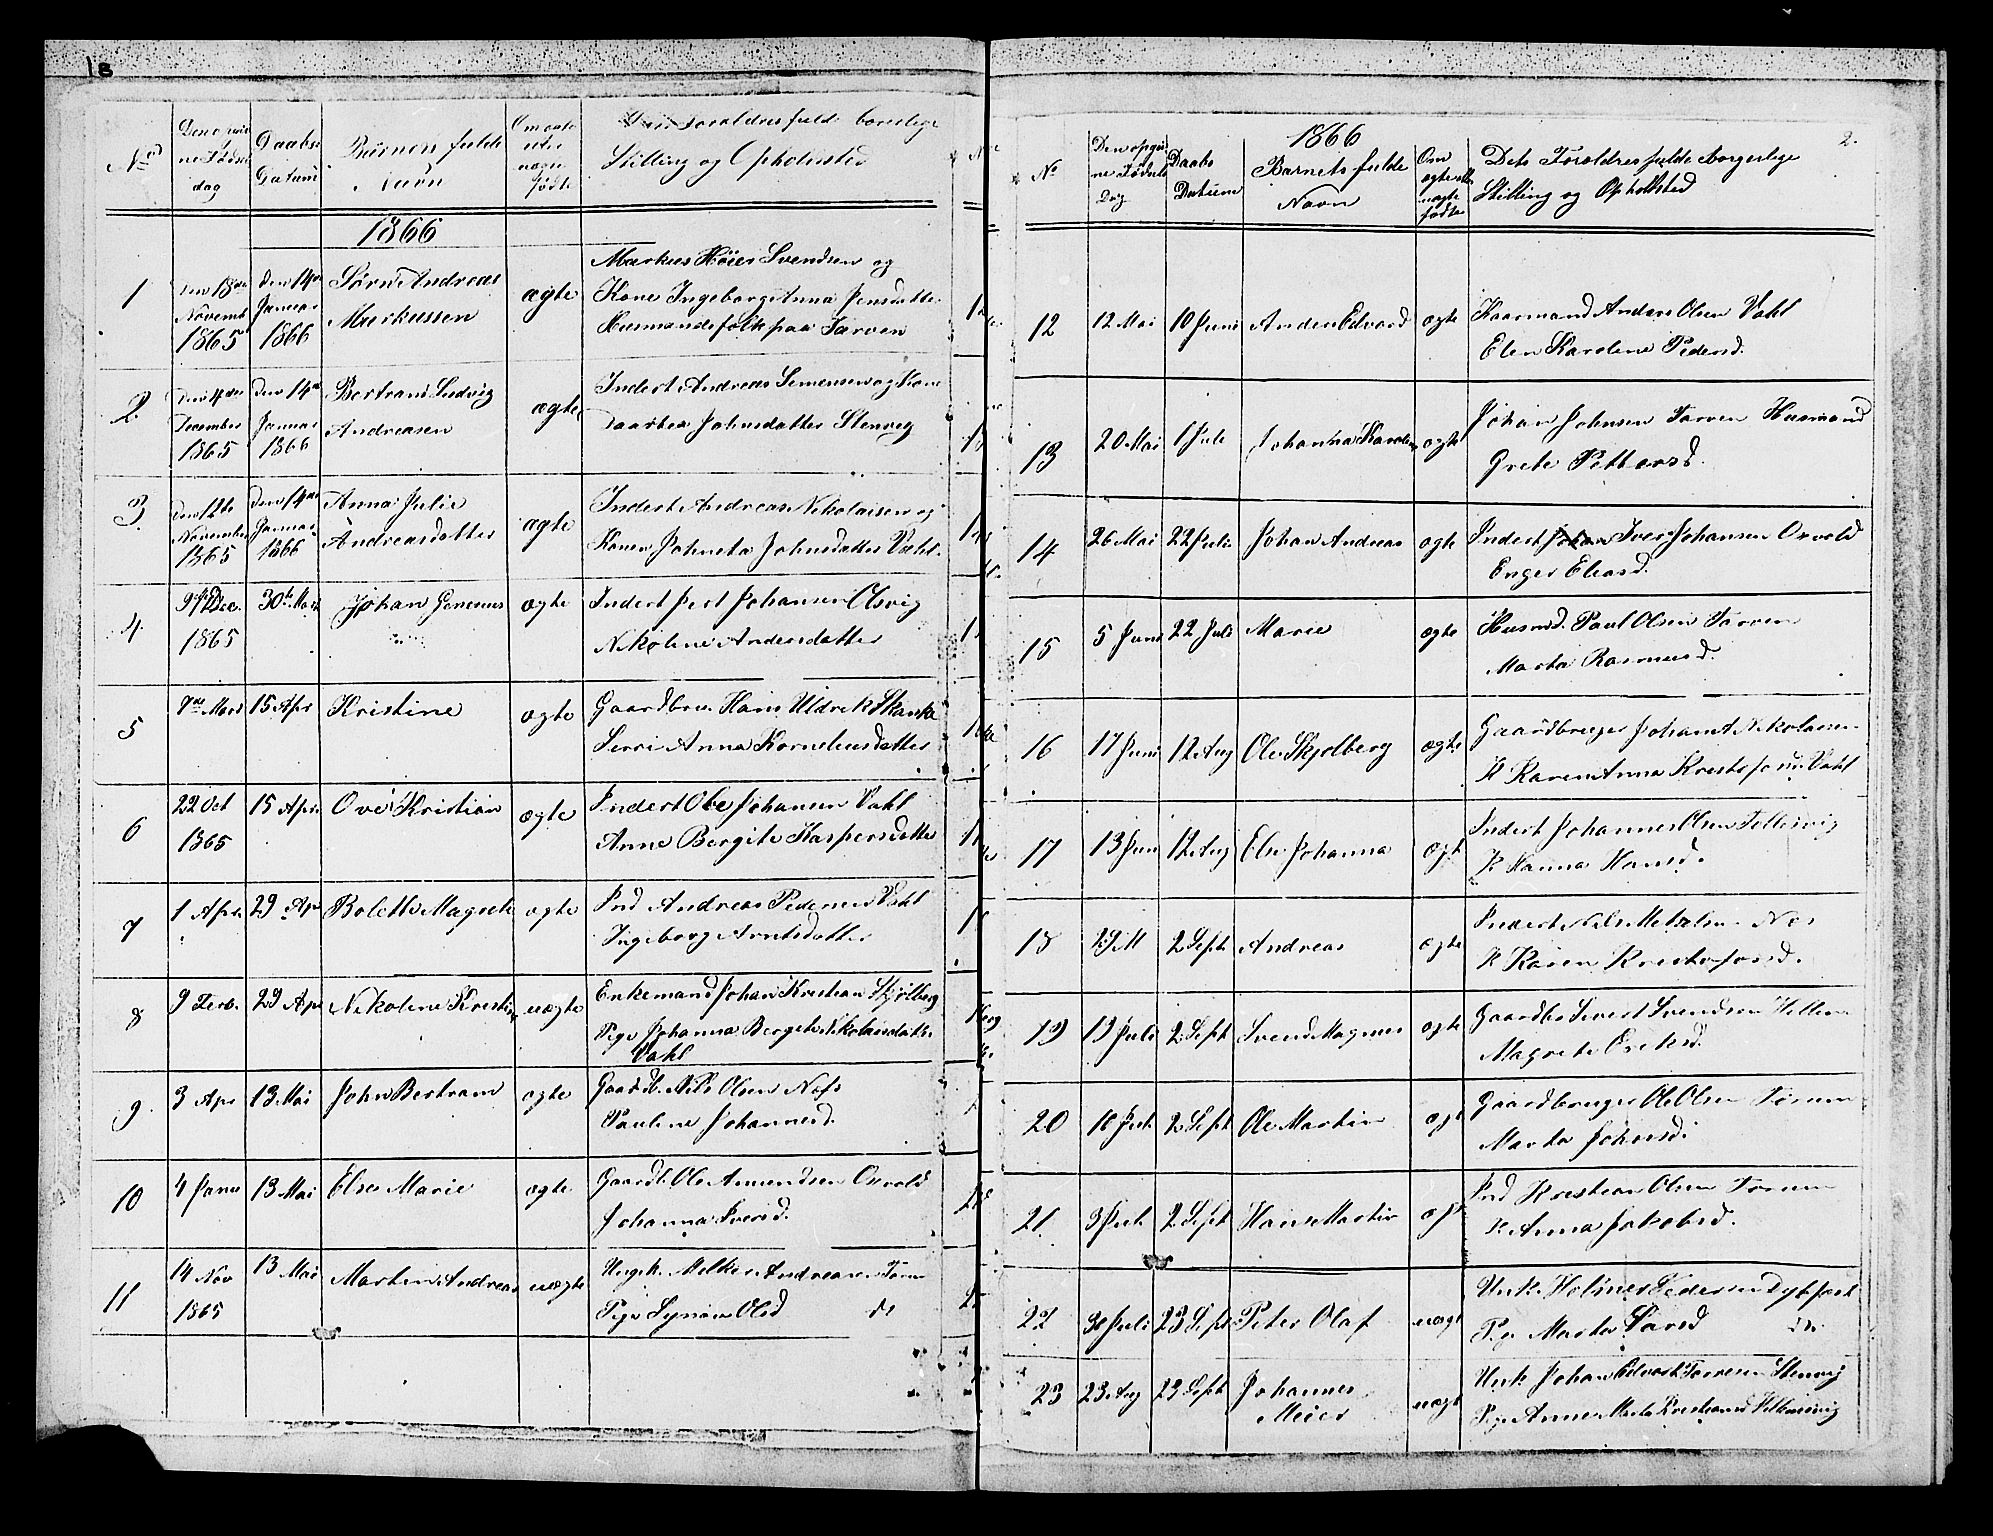 18
No
Daabs
Datum
Navn
Stilling og Opholdsted
1866
1
den 18de
Novemb
1865
den 14de
Januar
1866
Sørn Andreas
Markussen
ægte
Markus Höier Svendsen og
Kone Ingeborg Anna Jensdatter
Husmandsfolk paa Tarven
2
December
1865
den 14de
Januar
1866
Bertrand Ludvig
Andreasen
ægte
Inderst Andreas Simensen og Kone
Daarthea Johnsdatter Stenvig
3
den 12te
November
1865
den 14de
Januar
1866
Anna Julie
Andreasdatter
ægte
Inderst Andreas Nikolaisen og
Konen Johnsdatter Vahl
4
Dec.
1865
30te
Johan
ægte
Inderst Johansen Olsvig
Nikoline Andersdatter
5
7de
15 Apr
Kristine
ægte
Gaardbru. Hans Uldrik Skanke
Anna Korneliusdatter
6
22 Oct
1865
15 Apr.
Ove Kristian
ægte
Inderst Ole Johansen Vahl
Anne Bergite Kaspersdatter
7
1 Apr
29 Ap
Bolette Magrete
ægte
Ind Andreas Pedersen Vahl
Ingeborg Arntsdatter
8
9 Febr.
29 Apr
Nikoline Kristi
uægte
Enkemand Johan Kristian Skjølberg
Pige Johanna Bergite Nikolaisdatter
Vahl
9
3 Apr
13 Mai
John Bertram
ægte
Gaardb. Nils Olsen Næs
Pauline Johannesd.
10
4 Janu
13 Mai
Else Marie
ægte
Gaardb. Ole Amundsen Oxvold
Johanna Iversd.
11
14 Nov
1865
13 Mai
Martin Andreas
uægte
Ungk. Melkior Andreasen
Pige Synøve Olsd do
1866
2.
No
Den opgiv
ne Fødsels
Dag
Daabs
Datum
Barnets fulde
Navn
Om
ægte eller
uægte
fødte
Dets Forældres fulde Borgerlige
Stilling og Opholdsted
12
12 Mai
10 Juni
Anders Edvard
ægte
Kaarmand Anders Olsen Vahl
Elen Karoline Pedersd.
13
20 Mai
1 Juli
Johanna Karoline
ægte
Johan Johnsen Tarven Husmand
Grete Pettersd.
14
26 Mai
22 Juli
Johan Andreas
ægte
Inderst Iver Johansen Oxvold
Inger Eliasd.
15
5 Juni
22 Juli
Marie
ægte
Husmd. Paul Olsen Tarven
Marta Rasmusd.
16
17 Juni
12 Aug
Ole Skjølberg
ægte
Gaardbruger Johan A Nikolaisen
K Karen Anna Vahl
17
13 Juni
12 Aug
Else Johanna
ægt
Inderst Johannes Olsen
K Hanna Hansd.
18
2 Sept
Andreas
ægte
Inderst Nils Næs
K Karen Kristofersd.
19
13 Juli
2 Sept
Svend Magnus
ægte
Gaardbr Sivert Svendsen
Magrete Eriksd.
20
18 Juli
2 Sept
Ole Martin
ægt
Gaardbruger Ole Olsen
Marta Johnsd.
21
3 Juli
2 Sept
Hans Martin
Ind Kristian Olsen
K Anna Jakobsd.
22
30 Juli
23 Sept
Peter Olaf
uægt
Unk. Holmer Pedersen Dybfest
Pig Marta Larsd do.
23
23 Aug
23 Sept
Johannes
Meier
uægt
Unk Johan Edvart Stenvig
Pige Anne Marta